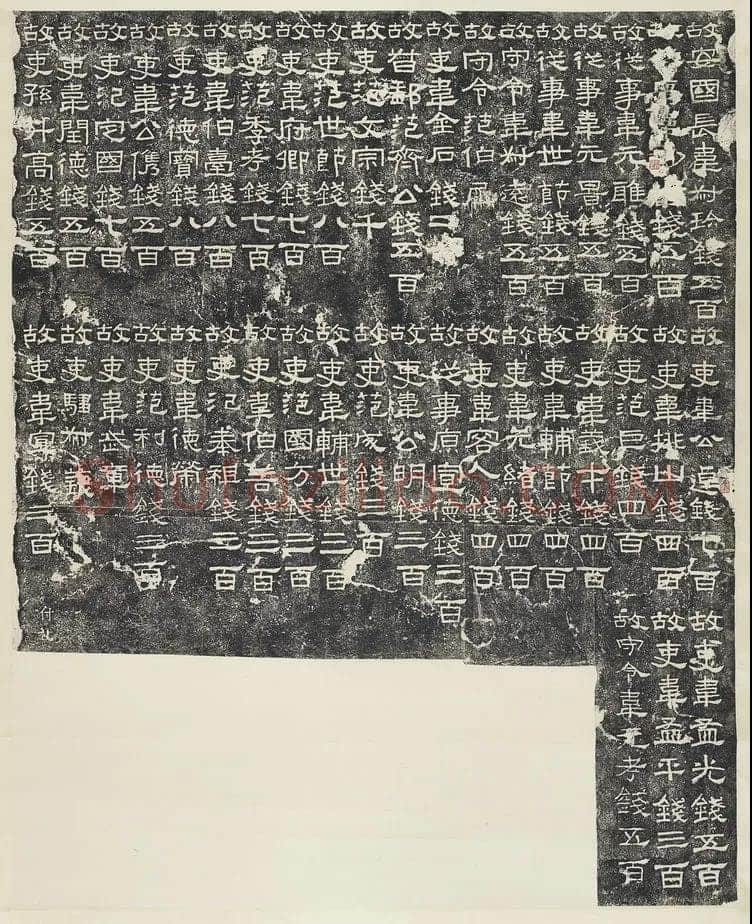 故安國長韋叔珍錢五百
故從事韋錢五百
故從事韋元雕錢五百
故從事韋元景錢五百
故從事韋世節錢五百
故守令韋叔遠錢五百
故守令范伯犀
故督郵范齊公錢五百
故吏韋金石錢二
故吏范文宗錢千
故吏范世節錢八百
故吏韋府卿錢七百
故吏范季考錢七百
故吏韋伯臺錢八百
故吏范德寶錢八百
故吏韋公儁錢五百
故吏氾定國錢七百
故吏韋閏德錢五百
故吏孫升高錢五百
故吏韋公逴錢七百
故吏韋排山錢四百
故吏范巨錢四百
故吏韋義才錢四百
故吏韋輔節錢四百
故吏韋元緒錢四百
故吏韋容人錢四百
故從事原宣德錢三百
故吏韋公明錢三百
故吏范成錢三百
故吏韋輔世錢三百
故吏范國方錢三百
故吏韋伯善錢三百
故吏氾奉祖錢三百
故吏韋德榮
故吏范利德錢三百
故吏韋武章
故吏騶叔義
故吏韋宣錢三百
故吏韋孟光錢五百
故吏韋孟平錢三百
故守令韋元考錢五百
shufaziliao.com